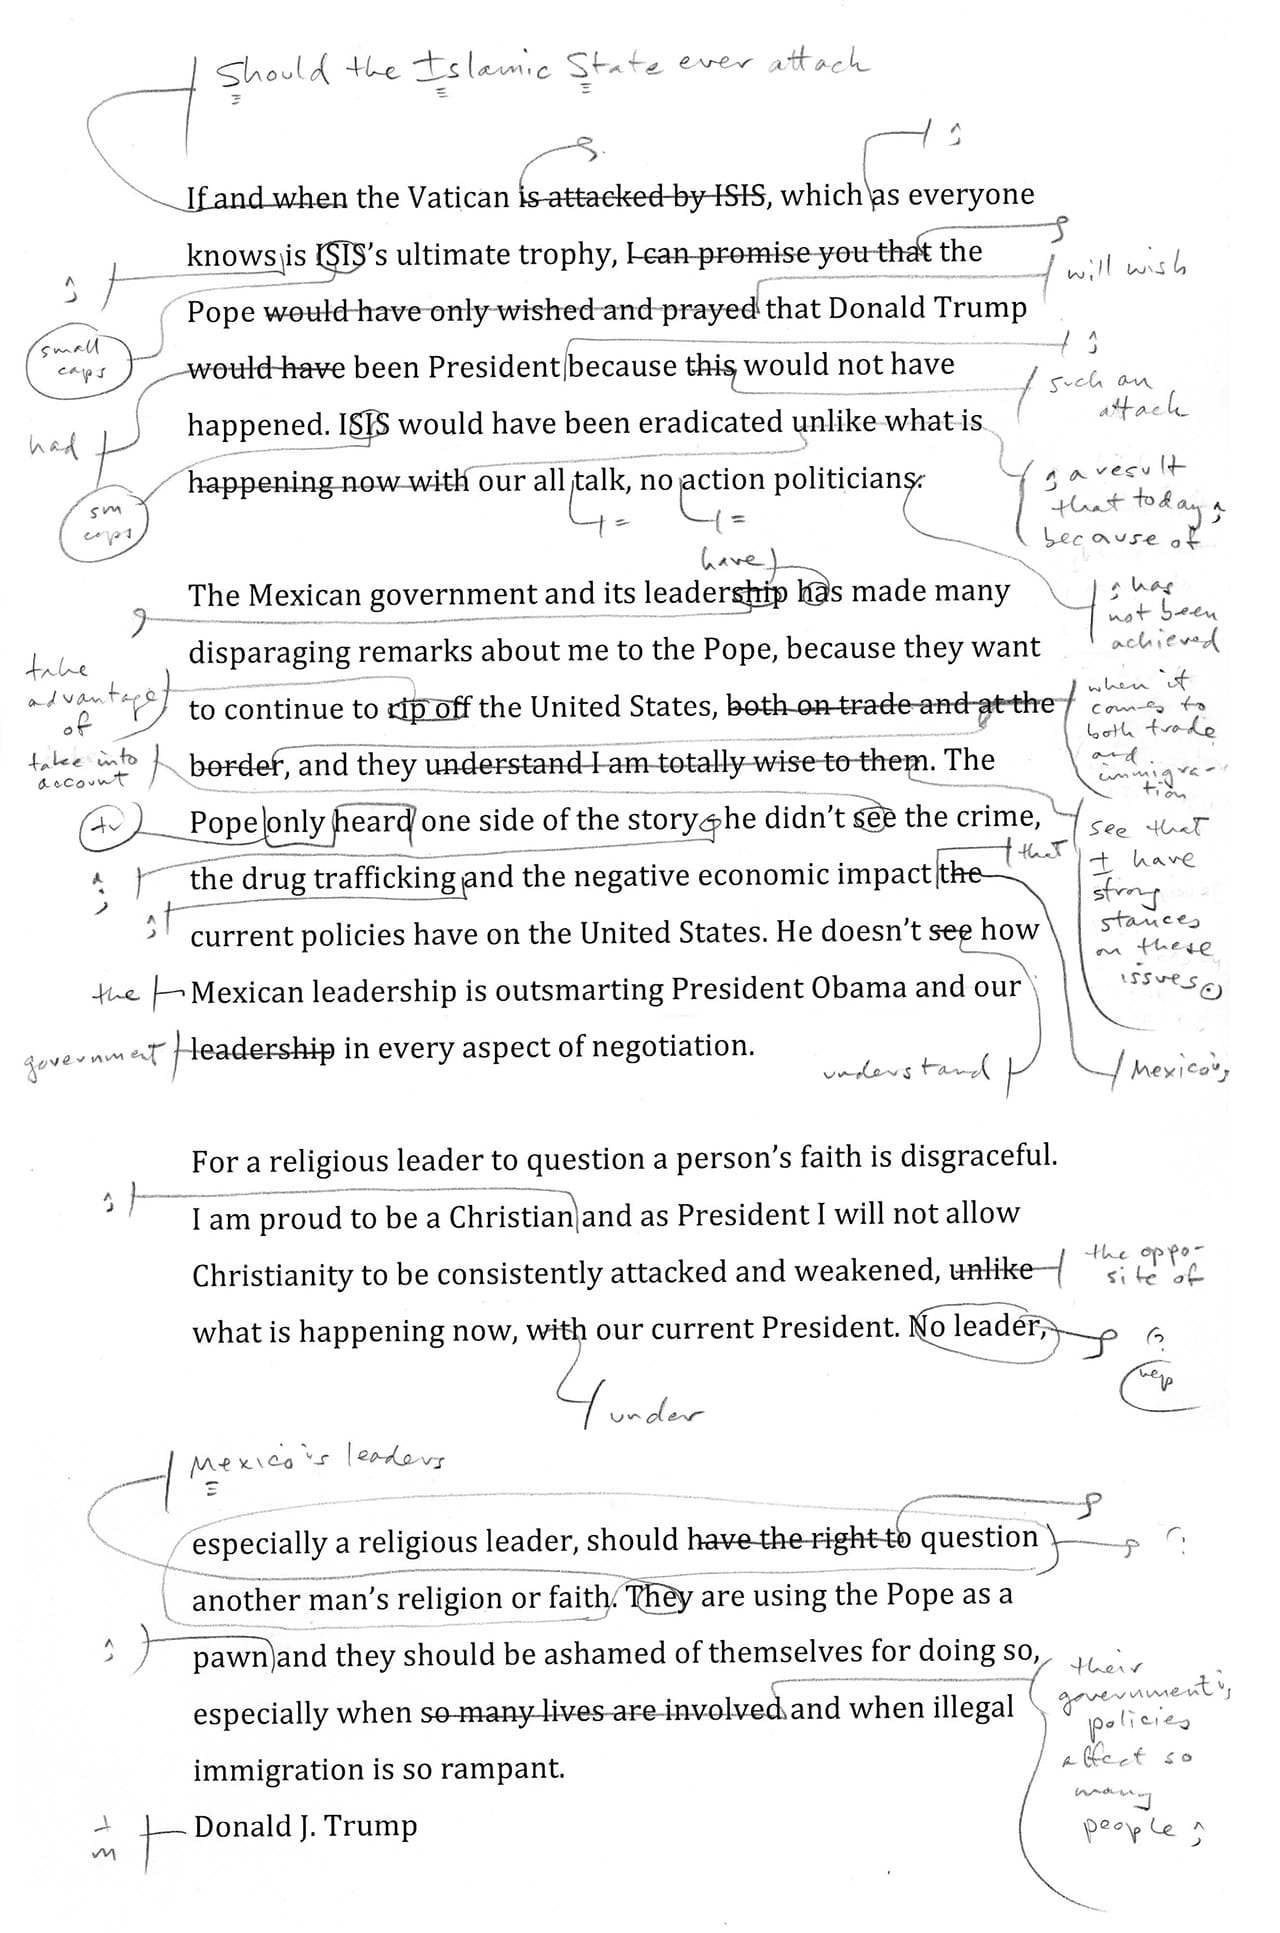 Should the Islamic State ever attack
;
If and when the Vatican is attacked by ISIS, which as everyone
knows is ISIS's ultimate trophy, I can promise you that the
will wish
Pope would have only wished and prayed that Donald Trump
small
caps
would have been President because this would not have
such an
attack
happened. ISIS would have been eradicated unlike what is
had
happening now with our all talk, no action politicians.
sm
caps
; a result
that today,
because of
have
The Mexican government and its leadership has made many
; has
not been
achieved
disparaging remarks about me to the Pope, because they want
take
advantage
of
to continue to rip off the United States, both on trade and at the
when it
comes to
both trade
and
immigra-
tion
take into
account
border, and they understand I am totally wise to them. The
Pope only heard one side of the story - he didn't see the crime,
tr
see that
I have
strong
stances
on these
issues
that
the drug trafficking and the negative economic impact the
current policies have on the United States. He doesn't see how
the
Mexican leadership is outsmarting President Obama and our
government
leadership in every aspect of negotiation.
understand
Mexico's
For a religious leader to question a person's faith is disgraceful.
I am proud to be a Christian and as President I will not allow
Christianity to be consistently attacked and weakened, unlike
the oppo-
site of
what is happening now, with our current President. No leader,
under
Mexico's leaders
especially a religious leader, should have the right to question
another man's religion or faith. They are using the Pope as a
pawn and they should be ashamed of themselves for doing so,
especially when so many lives are involved and when illegal
their
government's
policies
affect so
many
people
immigration is so rampant.
Donald J. Trump
1
m